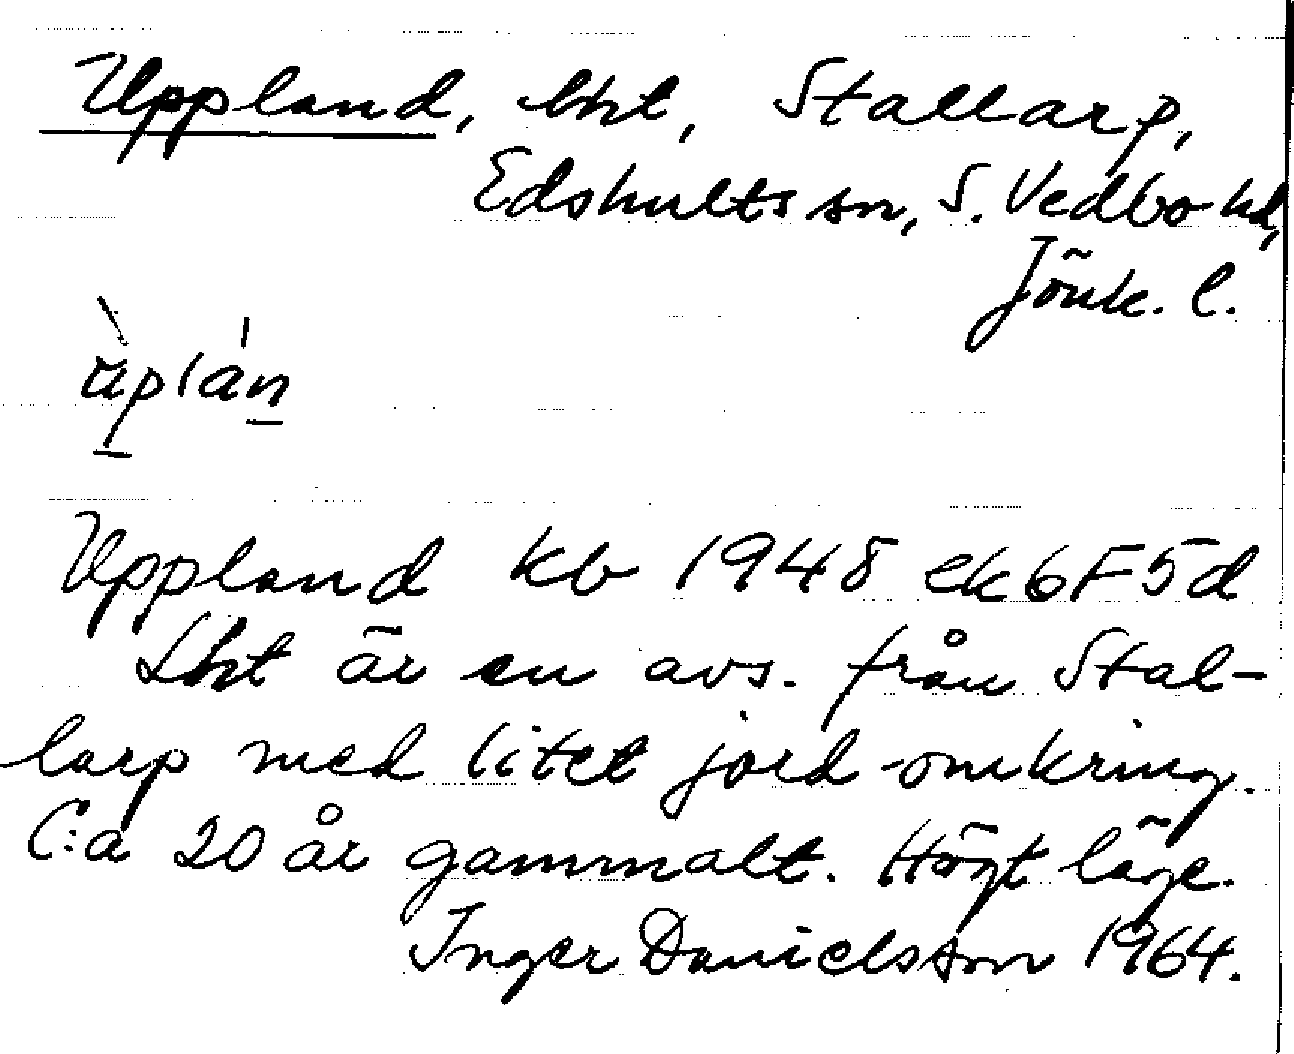 Uppland, lht, Stallarp,
Edshults sn, S. Vedbo hd,
Jönk. l.
ùplán
Uppland kb 1948 ek 6F5d
Lht är en avs. från Stal-
larp med litet jord omkring.
C:a 20 år gammalt. Högt läge.
Inger Danielsson 1964.